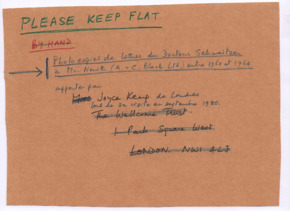 PLEASE KEEP FLAT
BY HAND
Photocopies de lettres du Docteur Schweitzer
à Mr. (A. + C. Black Ltd) entre 1960 et 1964
apportées par
Joyce Kemp de Londres
lors de sa visite en septembre 1980.
The Wellcome Trust
1 Park Square West
LONDON NW1 4LJ